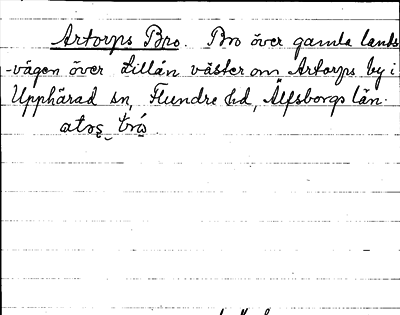 Artorps Bro. Bro över gamla lands
-vägen över Lillån väster om Artorps by i
Upphärad sn, Flundre hd, Älfsborgs län.